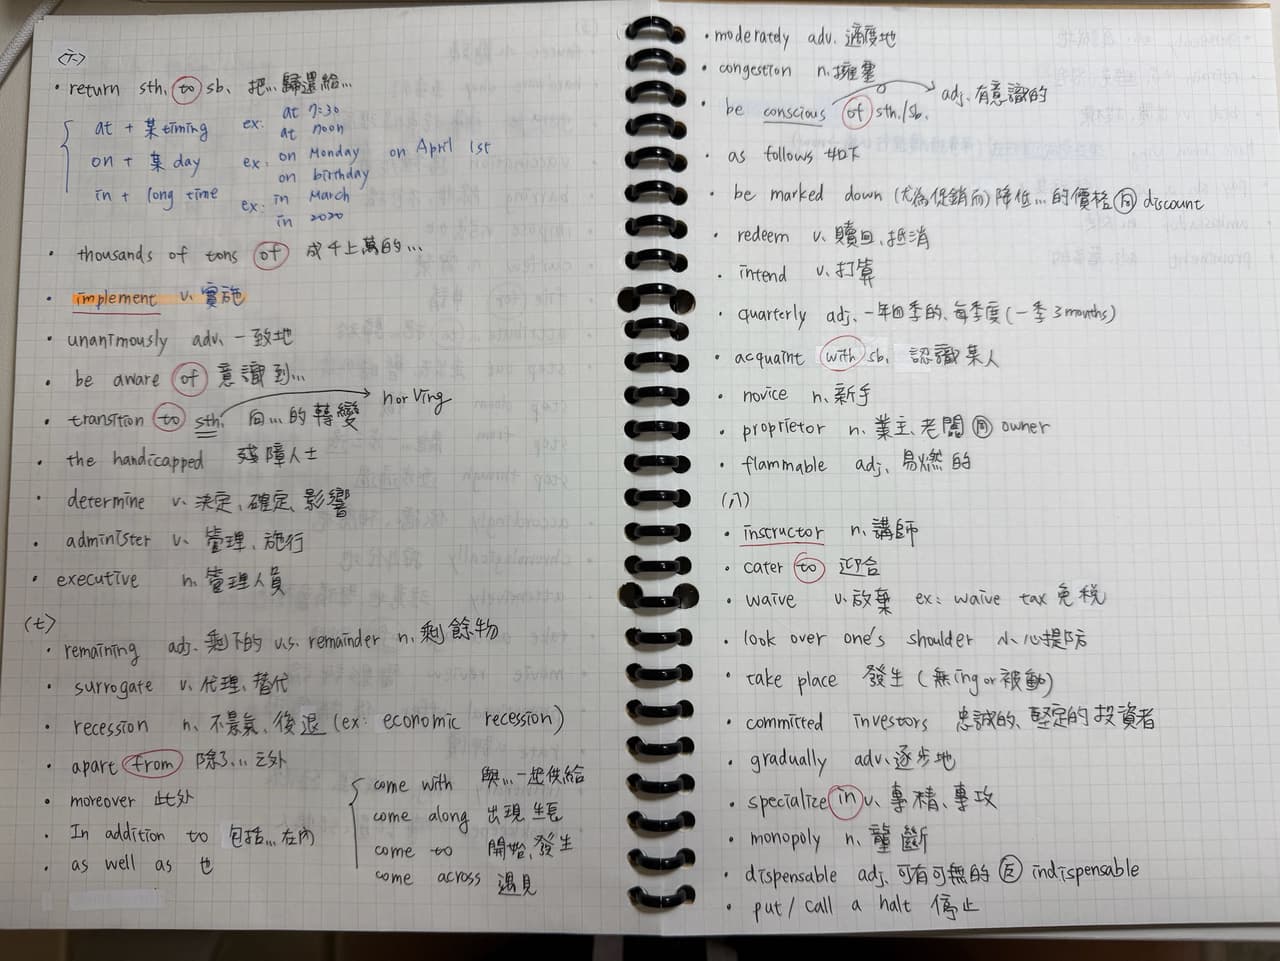 (六)
• return sth. to sb. 把...歸還給...
at + 某timing ex: at 7:30
at noon
on + 某 day ex: on Monday on April 1st
on birthday
in + long time ex: in March
in 2020
• thousands of tons of 成千上萬的...
• implement v. 實施
• unanimously adv. 一致地
• be aware of 意識到...
• transition to sth. 向...的轉變 n or Ving
• the handicapped 殘障人士
• determine v. 決定、確定、影響
• administer v. 管理、施行
• executive n. 管理人員
(七)
• remaining adj. 剩下的 v.s. remainder n. 剩餘物
• surrogate v. 代理、替代
• recession n. 不景氣、後退 (ex: economic recession)
• apart from 除了...之外
• moreover 此外
• In addition to 包括...在內
• as well as 也
come with 與...一起供給
come along 出現 生長
come to 開始、發生
come across 遇見
• moderately adv. 適度地
• congestion n. 擁塞
• be conscious of sth./sb. adj. 有意識的
• as follows 如下
• be marked down (尤為促銷而)降低...的價格 同 discount
• redeem v. 贖回、抵消
• intend v. 打算
• quarterly adj. 一年四季的、每季度(一季3months)
• acquaint with sb. 認識某人
• novice n. 新手
• proprietor n. 業主、老闆 同 owner
• flammable adj. 易燃的
(八)
• instructor n. 講師
• cater to 迎合
• waive v. 放棄 ex: waive tax 免稅
• look over one's shoulder 小心提防
• take place 發生 (無ing or 被動)
• committed investors 忠誠的、堅定的投資者
• gradually adv. 逐步地
• specialize in v. 專精、專攻
• monopoly n. 壟斷
• dispensable adj. 可有可無的 反 indispensable
• put / call a halt 停止